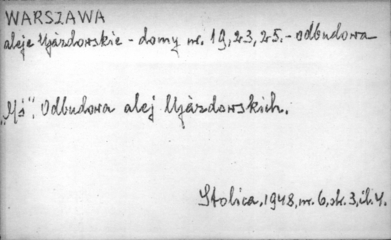 WARSZAWA
aleje Ujazdowskie - domy nr. 19, 23, 25. - odbudowa
„Mś". Odbudowa alej Ujazdowskich.
Stolica, 1948, nr. 6, sk. 3, il. 4.